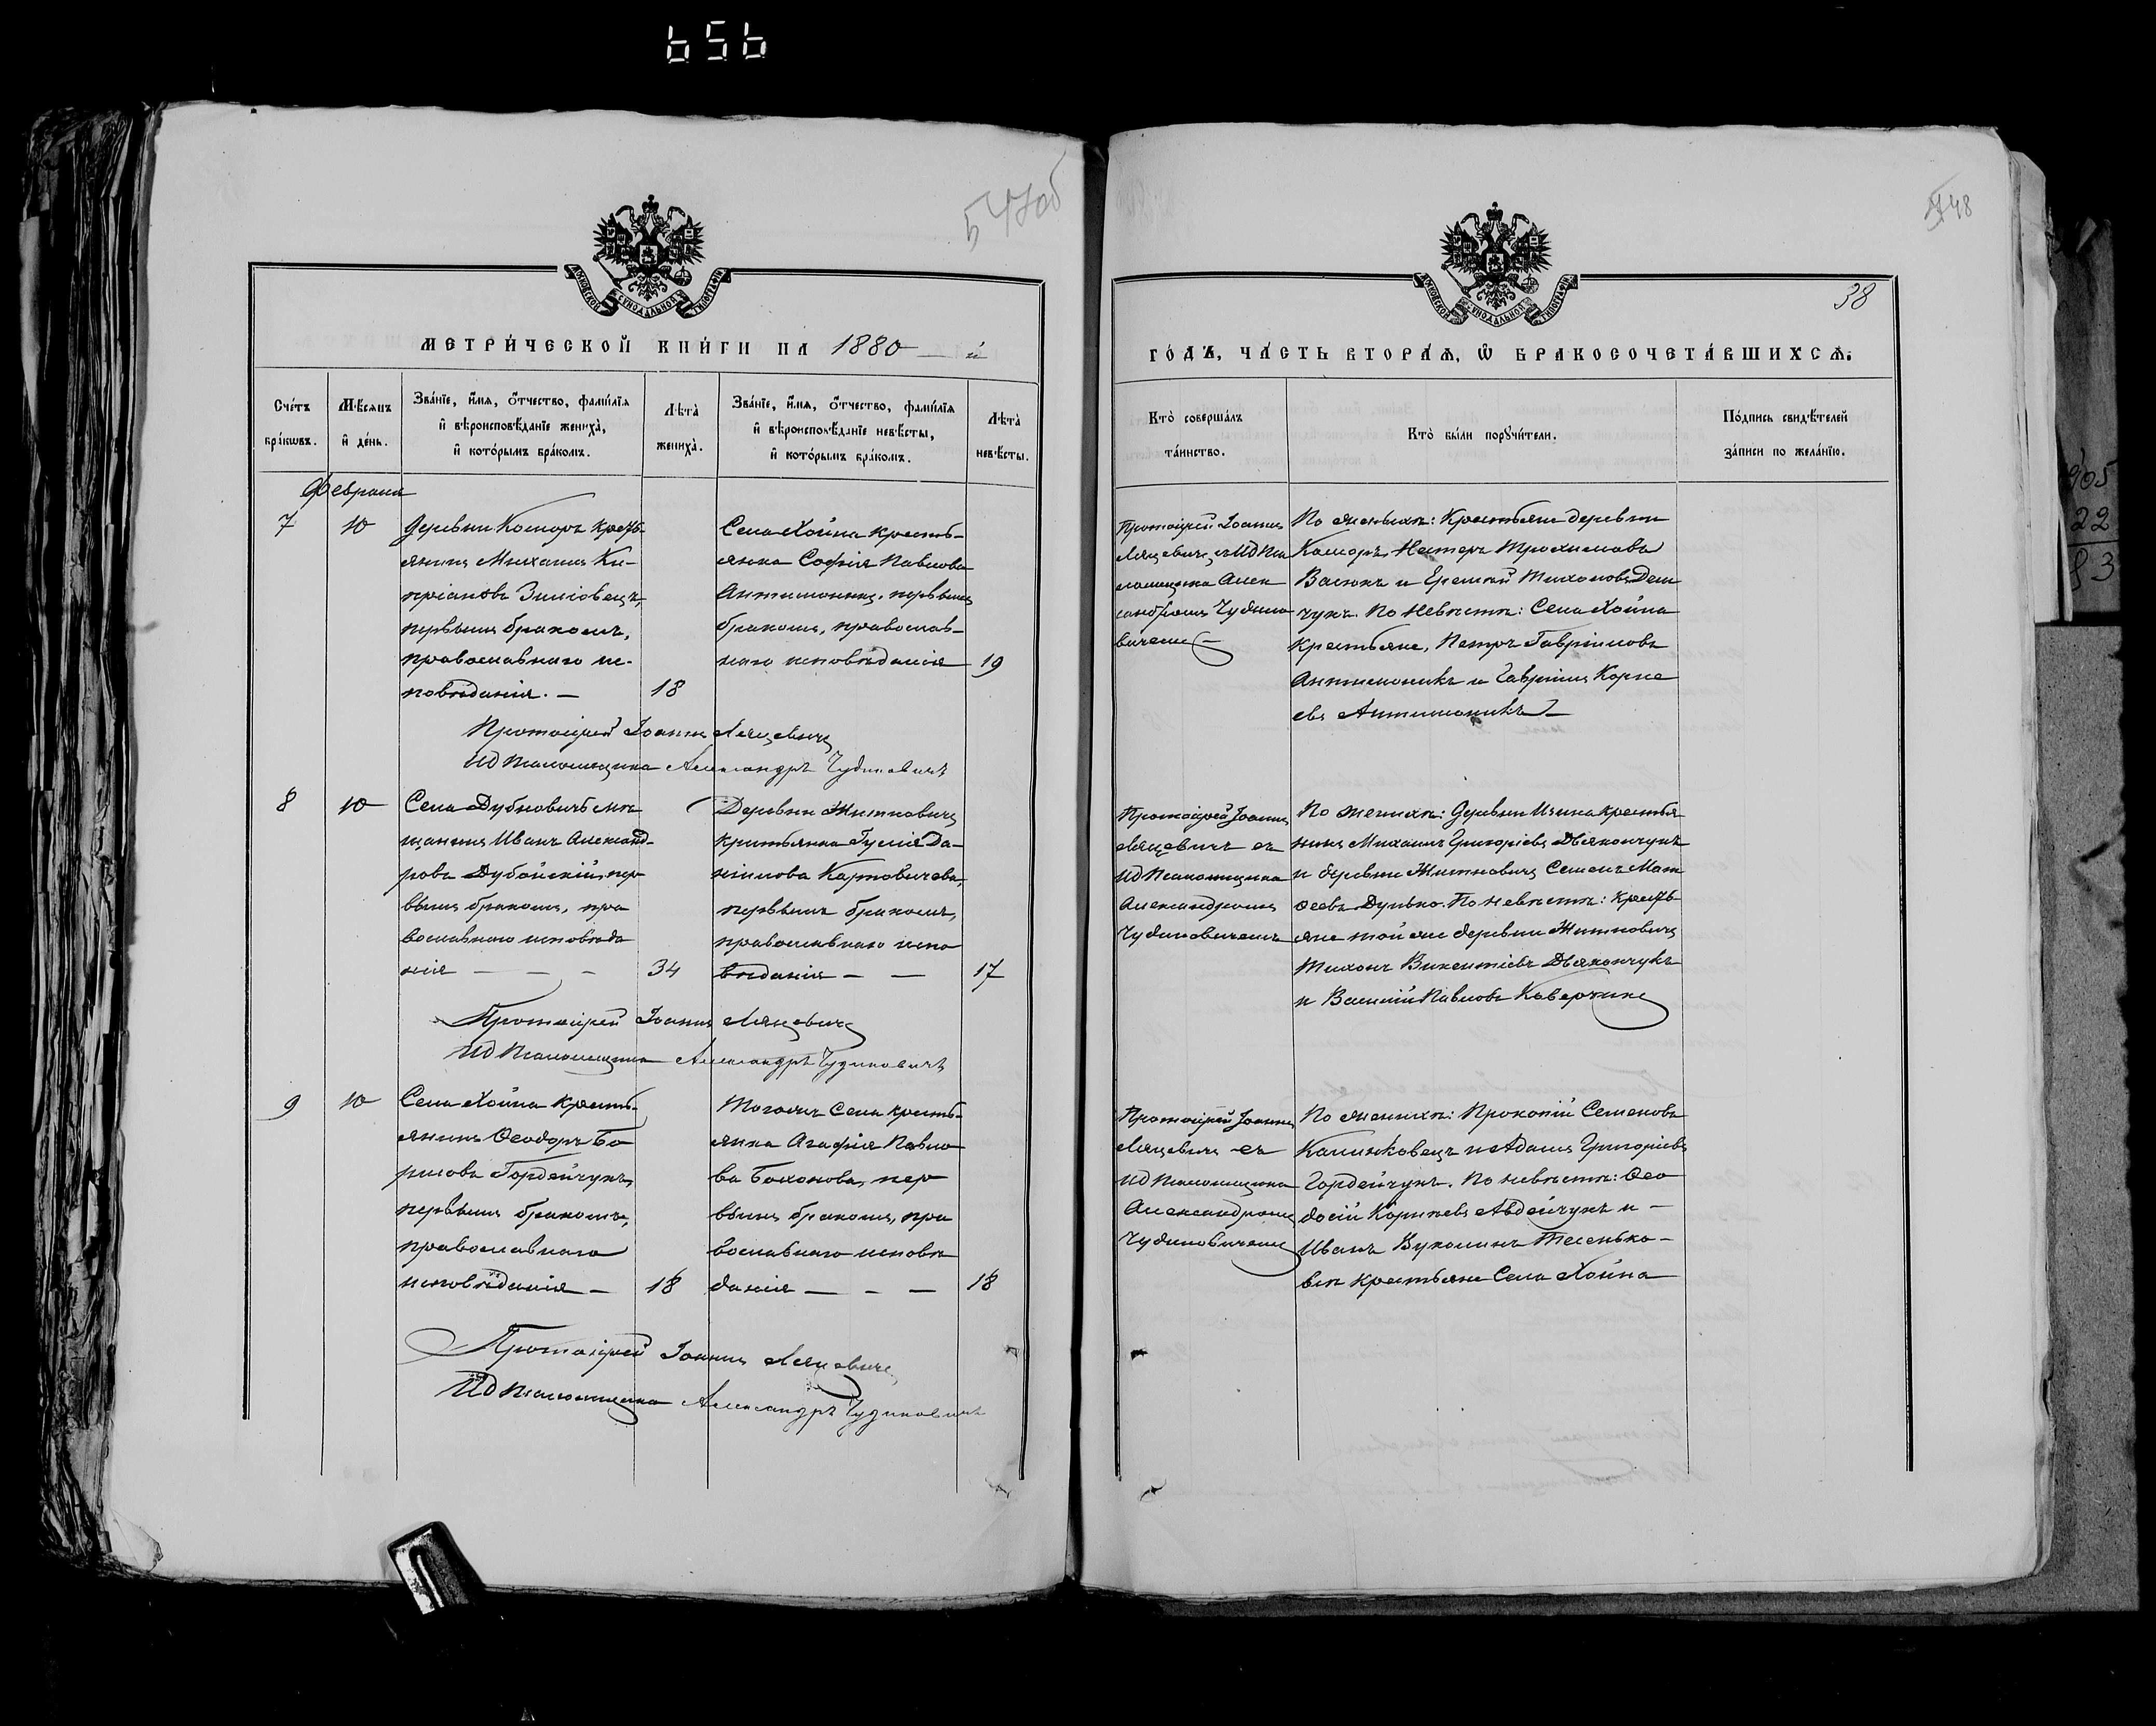 656
547об
МЕТРИ́ЧЕСКОЙ КНИ́ГИ НА 1880 й
Сче́тъ бра́ковъ.
Мѣ́сяцъ и҆ де́нь.
Зва́нїе, и҆́мя, ѻ҆́тчество, фами́лїя и҆ вѣроисповѣ́данїе жениха̀, и҆ кото́рымъ бра́комъ.
Лѣта̀ жениха̀.
Зва́нїе, и҆́мя, ѻ҆́тчество, фами́лїя и҆ вѣроисповѣ́данїе невѣ́сты, и҆ кото́рымъ бра́комъ.
Лѣта̀ невѣ́сты.
Февраля
7
10
Деревни Коморъ кресть-
янинъ Михаилъ Ки-
пріановъ Зиміовецъ,
первымъ бракомъ,
православнаго ис-
повѣданія. —
18
Села Хойна кресть-
янка Софія Павлова
Антимоникъ, первымъ
бракомъ, православ-
наго исповѣданія
19
Протоіерей Іоаннъ Ляцевичъ
ИД Псаломщика Александръ Чудиновичъ
8
10
Села Дубновичъ мѣ-
щанинъ Иванъ Александ-
ровъ Дубойскій, пер
вымъ бракомъ, пра
вославнаго исповѣда
нія — — —
34
Деревни Житновичъ
крестьянка Гулія Да-
ніилова Карповичева,
первымъ бракомъ,
православнаго испо
вѣданія — —
17
Протоіерей Іоаннъ Ляцевичъ
ИД Псаломщика Александръ Чудиновичъ
9
10
Села Хойна кресть-
янинъ Ѳеодоръ Бо
рисовъ Гордейчукъ,
первымъ бракомъ,
православнаго
исповѣданія —
18
Тогожъ Села кресть-
янка Агафія Павло
ва Бохонова, пер
вымъ бракомъ, пра
вославнаго исповѣ
данія — — —
18
Протоіерей Іоаннъ Ляцевичъ
ИД Псаломщика Александръ Чудиновичъ
48
38
ГО́ДЪ, ЧА́СТЬ ВТОРА́Ѧ, Ѽ БРАКОСОЧЕТА́ВШИХСѦ.
Кто̀ соверша́лъ та́инство.
Кто̀ бы́ли порꙋчи́тели.
По́дпись свидѣ́телей за́писи по жела́нїю.
Протоіерей Іоаннъ
Ляцевичъ съ ИД Пса
ломщика Алек
сандромъ Чудино
вичемъ
По женихѣ: Крестьяне деревни
Коморъ, Нестеръ Трохимовъ
Васюкъ и Еремѣй Тихоновъ Дем
чукъ. По невѣстѣ: Села Хойна
крестьяне, Петръ Гавріиловъ
Антимоникъ и Гавріилъ Корне
евъ Антимоникъ —
Протоіерей Іоаннъ
Ляцевичъ съ
ИД Псаломщика
Александромъ
Чудиновичемъ
По женихѣ: Деревни Изина крестья
нинъ Михаилъ Григоріевъ Дьякончукъ
и деревни Житновичъ Семенъ Мат
ѳеевъ Дулько. По невѣстѣ: Кресть-
яне той же деревни Житновичъ
Тихонъ Викентіевъ Дьякончукъ
и Василій Павловъ Каверчикъ
Протоіерей Іоаннъ
Ляцевичъ съ
ИД Псаломщика
Александромъ
Чудиновичемъ
По женихѣ: Прокопій Семеновъ
Калинковецъ и Адамъ Григоріевъ
Гордейчукъ. По невѣстѣ: Ѳео
досій Корнѣевъ Авдейчукъ и —
Иванъ Вуколинъ Тесенько-
въ крестьяне Села Хойна